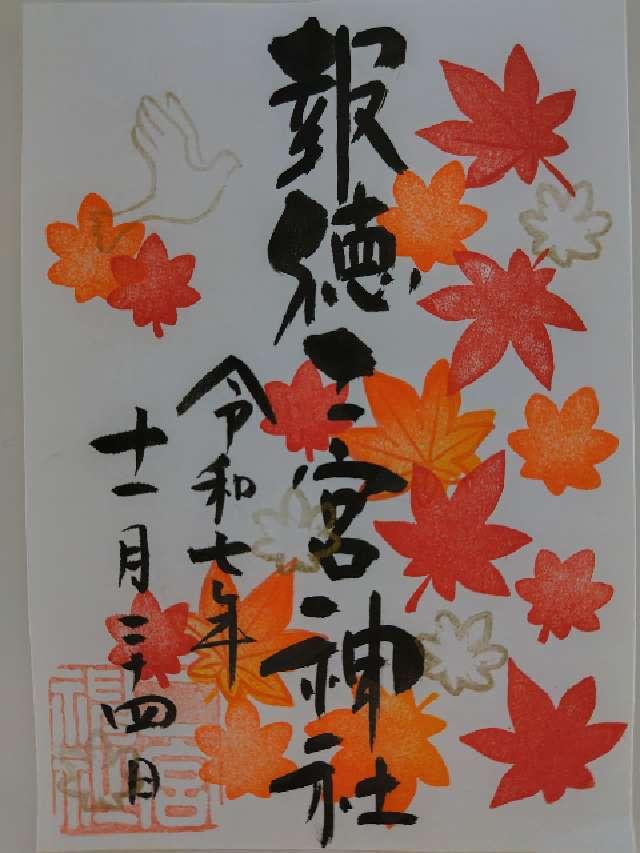 報徳二宮神社
令和七年
十一月二十四日
二宮
神社